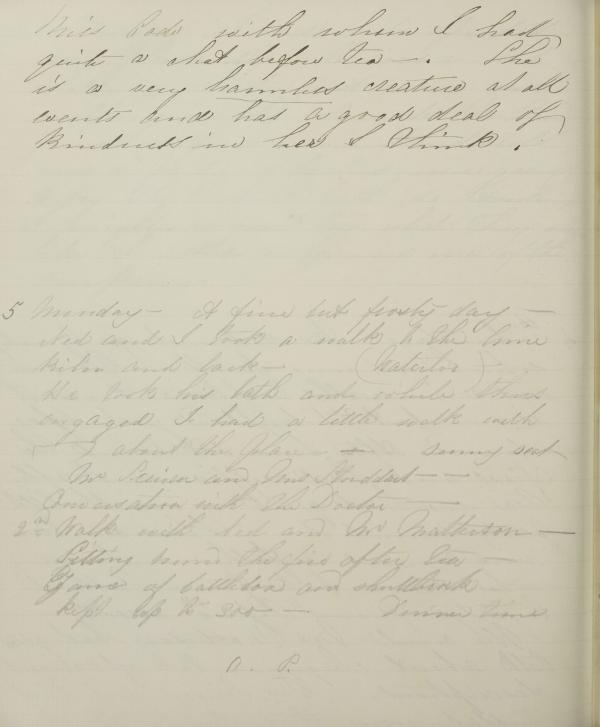 Miss Pade with whom I had
quite a chat before tea —. She
is a very harmless creature at all
events and has a good deal of
Kindness in her I think.
5 Monday — A fine but frosty day —
Ned and I took a walk to the lime
Kiln and back — (Waterloo)
He took his bath and while thus
engaged I had a little walk with
I about the place — sunny seat
Mr and Mrs Stoddart —
Conversation with the Doctor —
2nd Walk with Ned and Mr Matherson —
Sitting round the fire after tea —
Game of battledoa and shuttlecock
kept up to 300 — Dinner time
O. P.